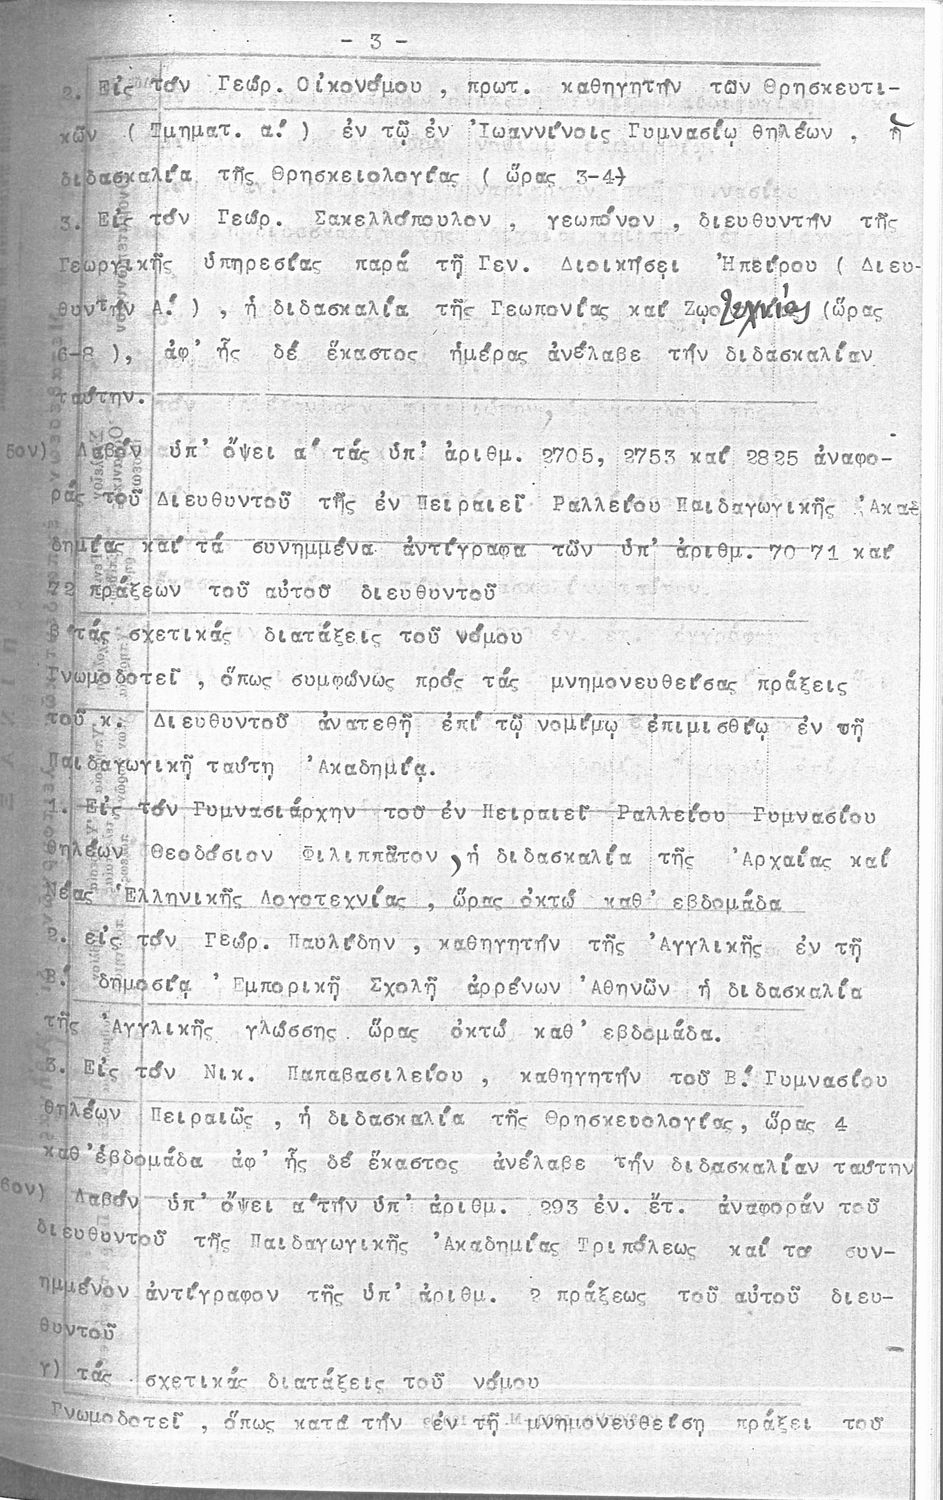 - 3 -
2. Εἰς τόν Γεώρ. Οἰκονόμου , πρωτ. καθηγητήν τῶν Θρησκευτι-
κῶν ( Τμηματ. α.΄ ) ἐν τῷ ἐν Ἰωαννίνοις Γυμνασίῳ θηλέων , ἡ
διδασκαλία τῆς Θρησκειολογίας ( ὥρας 3-4)
3. Εἰς τόν Γεώρ. Σακελλόπουλον , γεωπόνον , διευθυντήν τῆς
Γεωργικῆς ὑπηρεσίας παρά τῇ Γεν. Διοικήσει Ἠπείρου ( Διευ-
θυντήν Α.΄ ) , ἡ διδασκαλία τῆς Γεωπονίας καί Ζῳοτεχνίας (ὥρας
6-8 ), ἀφ' ἧς δέ ἕκαστος ἡμέρας ἀνέλαβε τήν διδασκαλίαν
ταύτην.
5ον) Λαβόν ὑπ' ὄψει α΄ τάς ὑπ' ἀριθμ. 2705, 2753 καί 2825 ἀναφο-
ράς τοῦ Διευθυντοῦ τῆς ἐν Πειραιεῖ Ραλλείου Παιδαγωγικῆς Ἀκα
δημίας καί τά συνημμένα ἀντίγραφα τῶν ὑπ' ἀριθμ. 70 71 καί
72 πράξεων τοῦ αὐτοῦ διευθυντοῦ
β΄ τάς σχετικάς διατάξεις τοῦ νόμου
Γνωμοδοτεῖ , ὅπως συμφώνως πρός τάς μνημονευθείσας πράξεις
τοῦ κ. Διευθυντοῦ ἀνατεθῇ ἐπί τῷ νομίμῳ ἐπιμισθίῳ ἐν τῇ
Παιδαγωγικῇ ταύτη Ἀκαδημίᾳ.
1. Εἰς τόν Γυμνασιάρχην τοῦ ἐν Πειραιεῖ Ραλλείου Γυμνασίου
θηλέων Θεοδόσιον Φιλιππᾶτον , ἡ διδασκαλία τῆς Ἀρχαίας καί
Νέας Ἑλληνικῆς Λογοτεχνίας , ὥρας ὀκτώ καθ' εβδομάδα
2. εἰς τόν Γεώρ. Παυλίδην , καθηγητήν τῆς Ἀγγλικῆς ἐν τῇ
Β.΄ δημοσίᾳ Ἐμπορικῇ Σχολῇ ἀρρένων Ἀθηνῶν ἡ διδασκαλία
τῆς Ἀγγλικῆς γλώσσης ὥρας ὀκτώ καθ' εβδομάδα.
3. Εἰς τόν Νικ. Παπαβασιλείου , καθηγητήν τοῦ Β.΄ Γυμνασίου
θηλέων Πειραιῶς , ἡ διδασκαλία τῆς Θρησκευολογίας, ὥρας 4
καθ' ἑβδομάδα ἀφ' ἧς δέ ἕκαστος ἀνέλαβε τήν διδασκαλίαν ταύτην
6ον) Λαβόν ὑπ' ὄψει α΄ τήν ὑπ' ἀριθμ. 293 ἐν. ἔτ. ἀναφοράν τοῦ
διευθυντοῦ τῆς Παιδαγωγικῆς Ἀκαδημίας Τριπόλεως καί το συν-
ημμένον ἀντίγραφον τῆς ὑπ' ἀριθμ. 2 πράξεως τοῦ αὐτοῦ διευ-
θυντοῦ
γ) τάς σχετικάς διατάξεις τοῦ νόμου
Γνωμοδοτεῖ , ὅπως κατά τήν ἐν τῇ μνημονευθείσῃ πράξει τοῦ